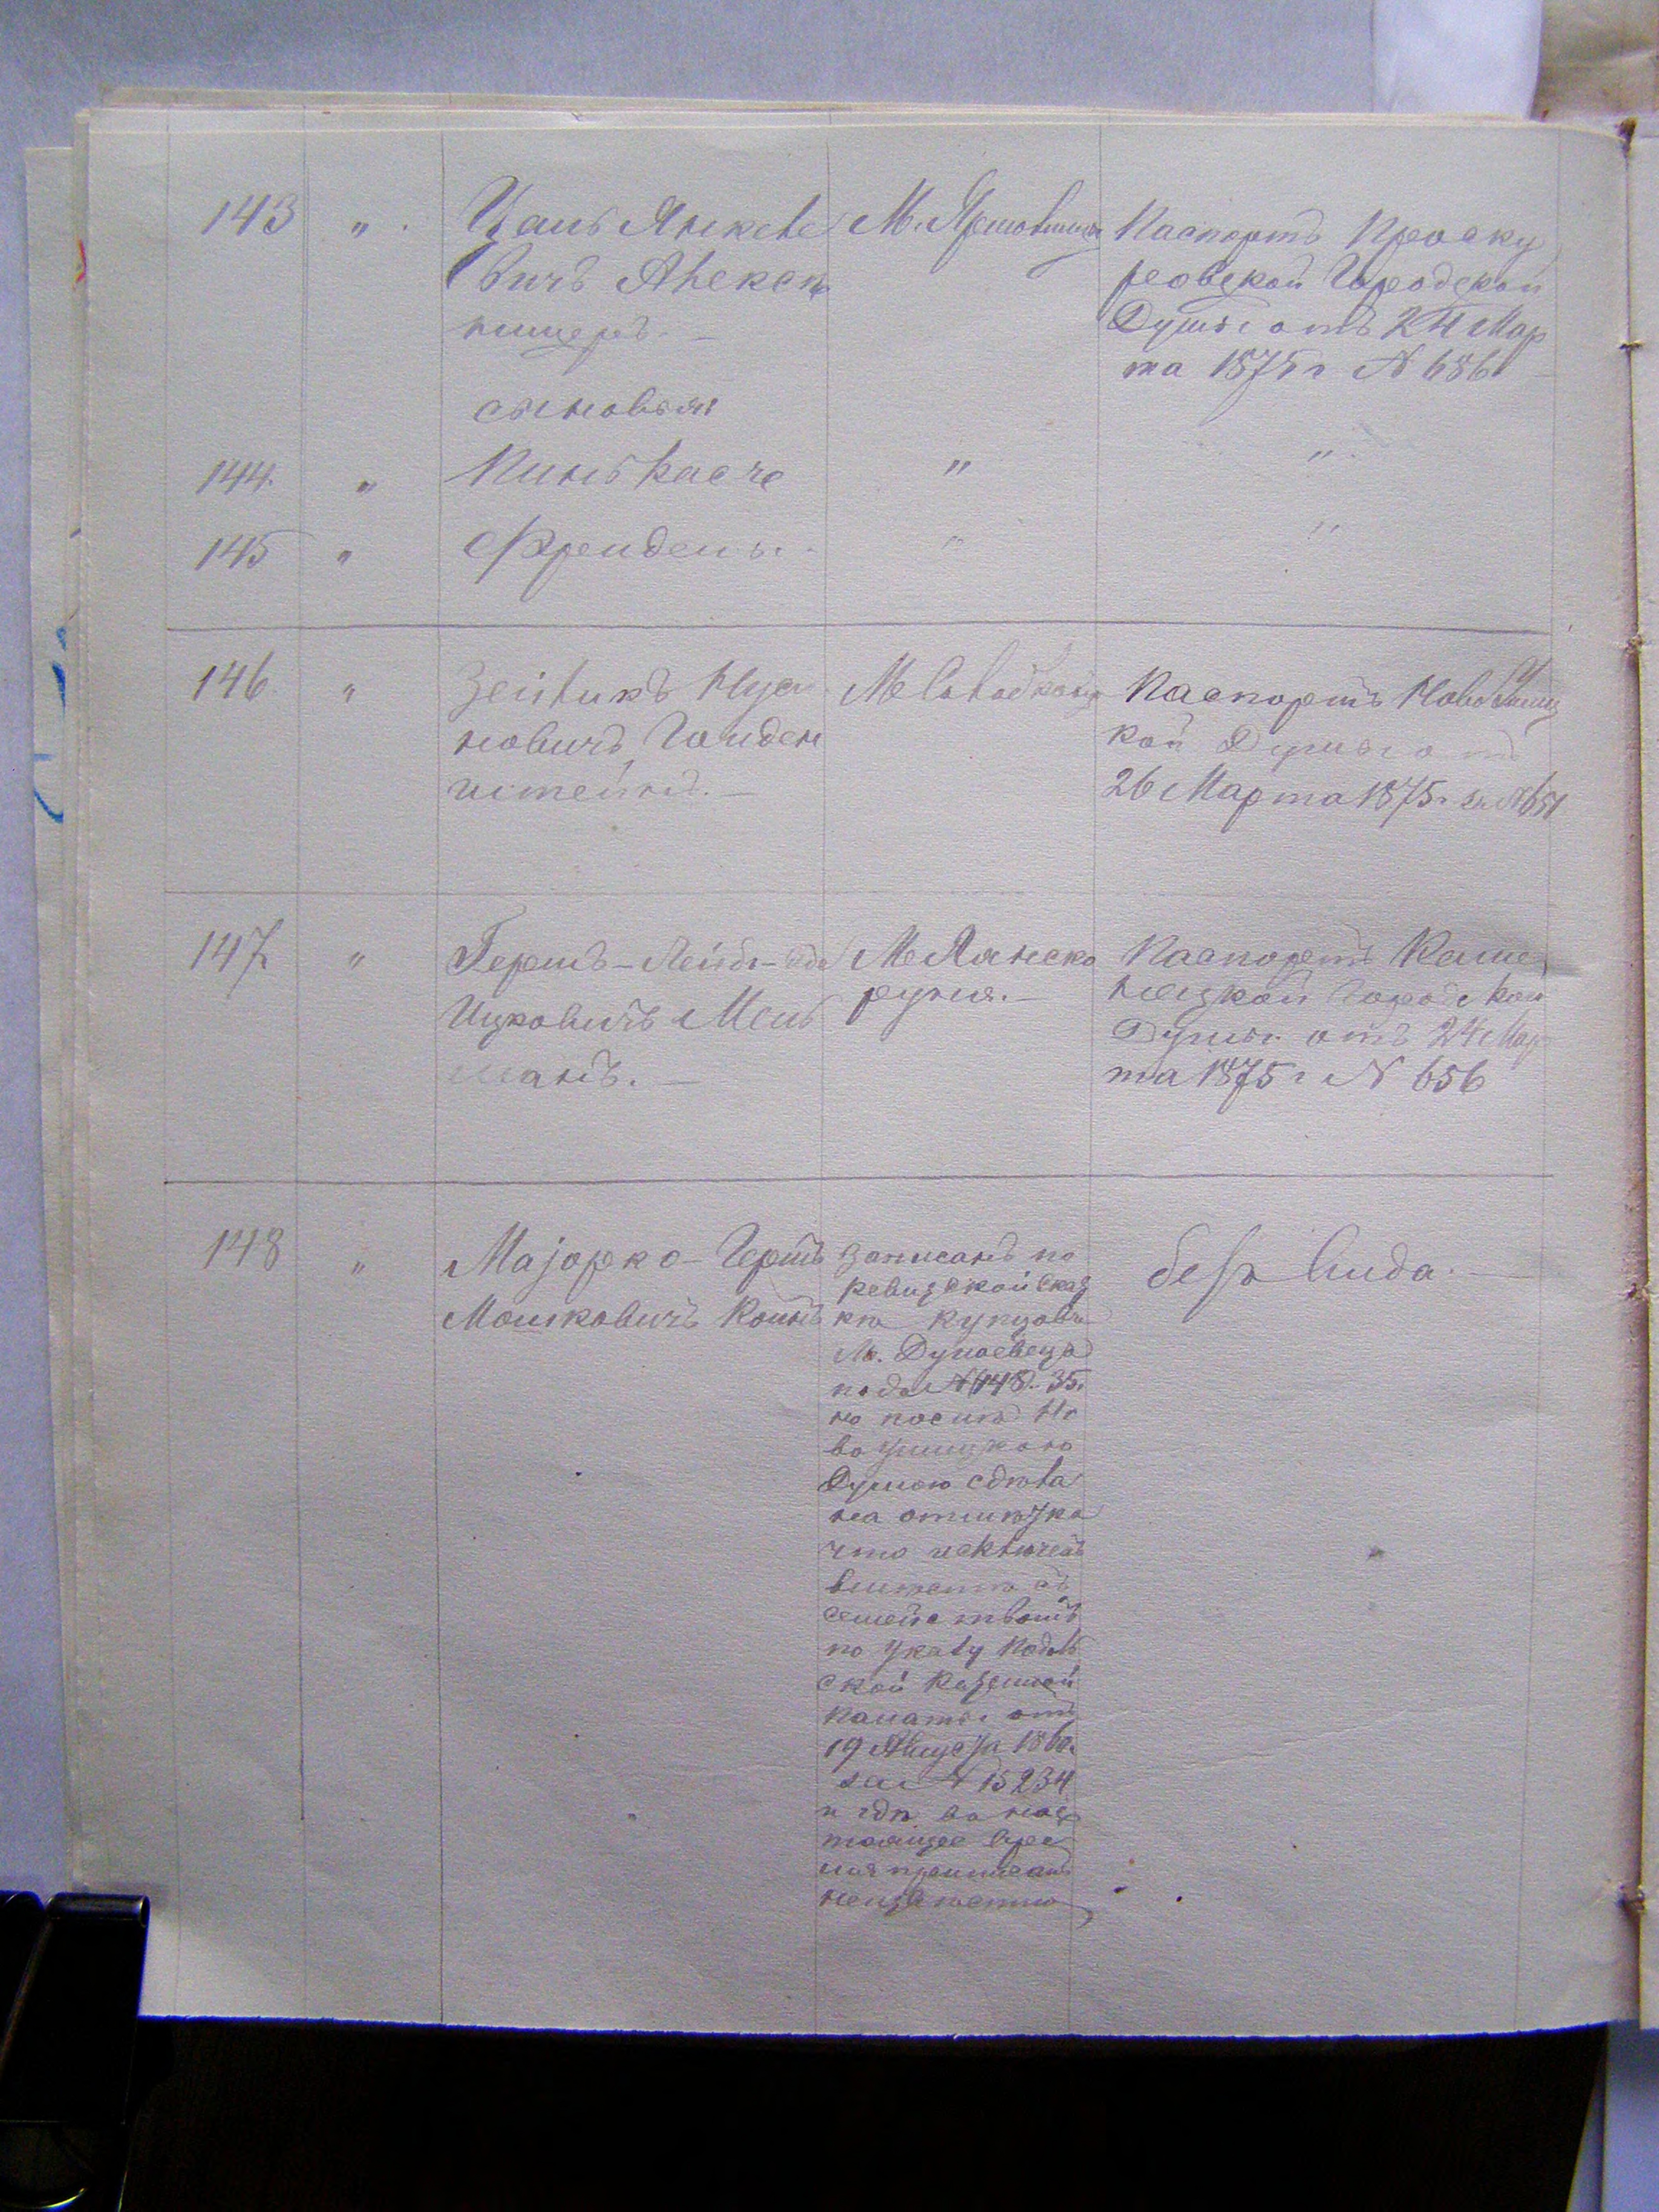 143 " Цаль Янкеле
вичъ Алексен
ницеръ. —
М. Ярмолинцы
Паспортъ Проску
ровской Городской
Думы отъ 24 Мар
та 1875 г N 686 —
сыновья:
144. " Пинькасъ " "
145 " Фроидель. " "
146. " Зейликъ Нусы
новичъ Гольден
штейнъ. —
М Солодковцы
Паспортъ Ново Ушиц
кой Думы отъ
26 Марта 1875 г за N 651
147 " Гершъ-Лейбъ
Ицковичъ Мель
манъ. —
М Лянско
рунь. —
Паспортъ Каме
нецкой Городской
Думы отъ 24 Мар
та 1875 г N 656
148 " Маjорко-Гершъ
Мошковичъ Койнъ
записанъ по
ревизской сказ
кѣ купцовъ
М. Дунаевецъ
подъ N 148 - 35.
но послѣ Но
во Ушицкою
Думою сдѣла
на отмѣтка
что исключенъ
вмѣстѣ съ
семействомъ
по указу Подоль
ской Казенной
Палаты отъ
19 Августа 1860 г.
за N 15234
и гдѣ въ нас
тоящее вре
мя приписанъ
неизвѣстно
безъ вида. —